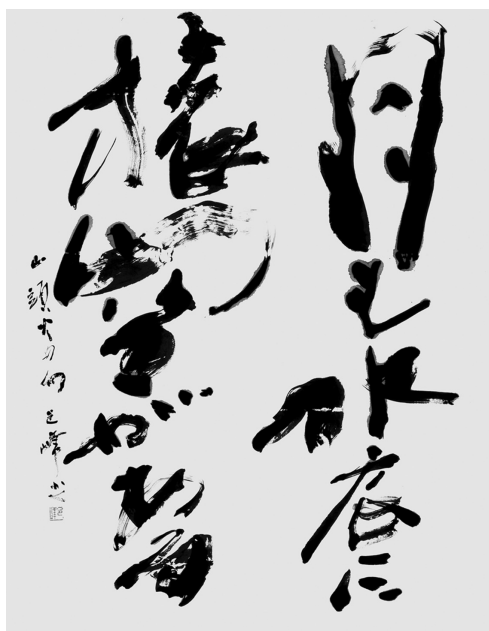 月も水底に
旅空がある
山頭火の句